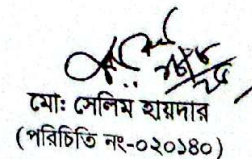 মো: সেলিম হায়দার
(পরিচিতি নং-০২০১৪০)